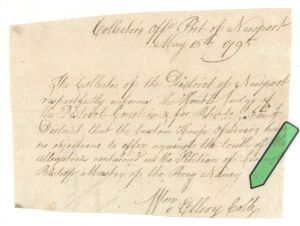 Collector's Offe Port of Newport
May 15th 1795
The Collector of the District of Newport
respectfully informs the Honble Judge of
the District Court in & for Rhode Island
District, that the Custom House Officers have
no objections to offer against the truth of the
allegations contained in the Petition of
Bishop Master of the Brig Nancy
Wm Ellery Colle